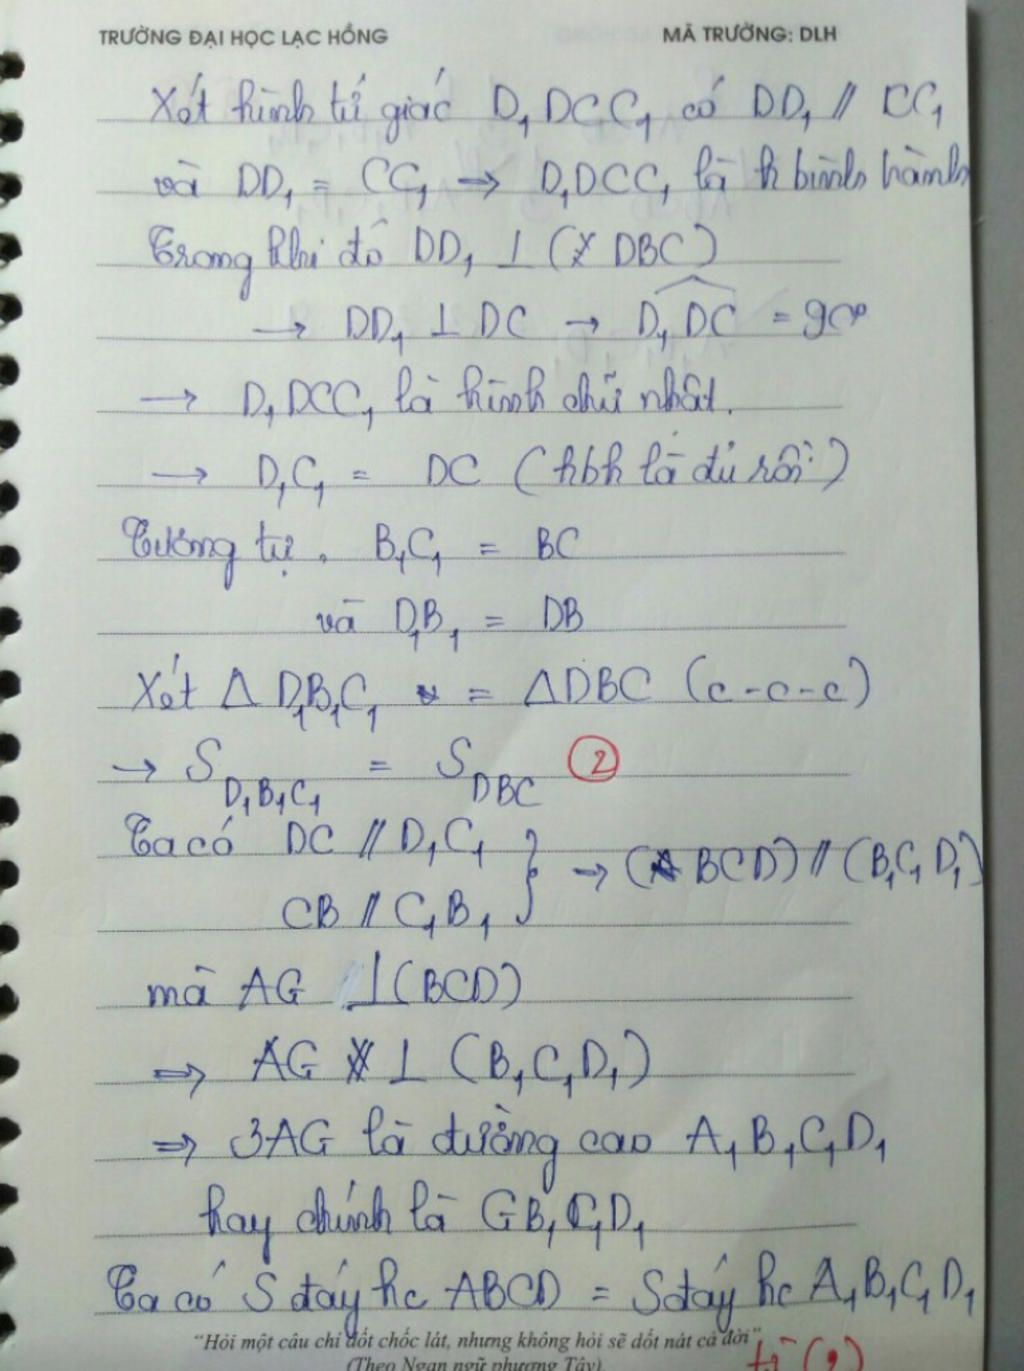 TRƯỜNG ĐẠI HỌC LẠC HỒNG MÃ TRƯỜNG: DLH
Xét hình tứ giác D₁DCC₁ có DD₁ // CC₁
và DD₁ = CC₁ → D₁DCC₁ là h bình hành
Trong khi đó DD₁ ⊥ (DBC)
→ DD₁ ⊥ DC → D₁DC = 90°
→ D₁DCC₁ là hình chữ nhật.
→ D₁C₁ = DC (hbh là đủ rồi)
Tương tự. B₁C₁ = BC
và D₁B₁ = DB
Xét Δ D₁B₁C₁ = ΔDBC (c-c-c)
→ S D₁B₁C₁ = S DBC ②
Ta có DC // D₁C₁
CB // C₁B₁ } → (BCD) // (B₁C₁D₁)
mà AG ⊥ (BCD)
⇒ AG ⊥ (B₁C₁D₁)
⇒ 3AG là đường cao A₁B₁C₁D₁
hay chính là GB₁C₁D₁
Ta có S đáy hc ABCD = S đáy hc A₁B₁C₁D₁
"Hỏi một câu chỉ dốt chốc lát, nhưng không hỏi sẽ dốt nát cả đời"
(Theo Ngạn ngữ phương Tây).